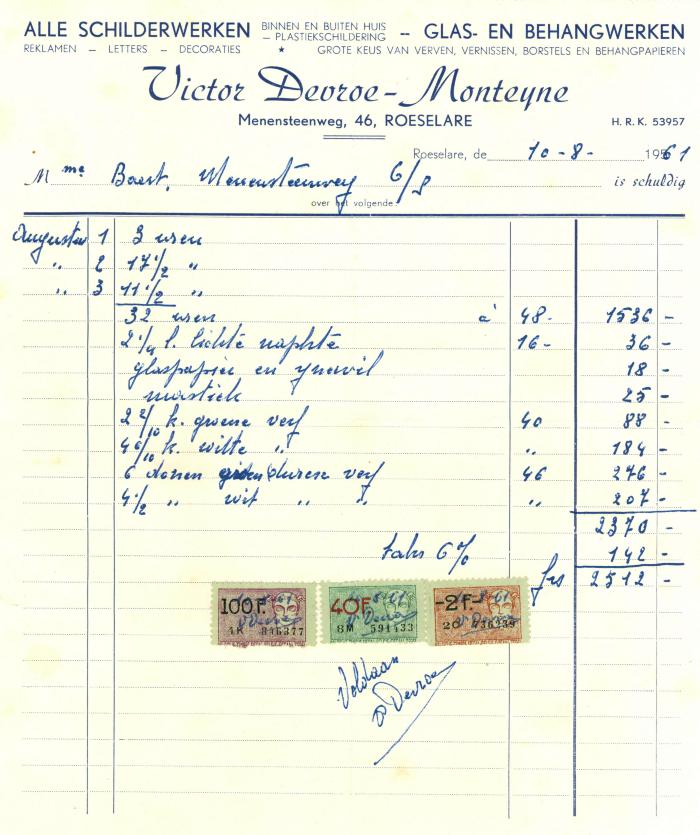 ALLE SCHILDERWERKEN BINNEN EN BUITEN HUIS – PLASTIEKSCHILDERING – GLAS- EN BEHANGWERKEN
REKLAMEN – LETTERS – DECORATIES * GROTE KEUS VAN VERVEN, VERNISSEN, BORSTELS EN BEHANGPAPIEREN
Victor Devroe - Monteyne
Menensteenweg, 46, ROESELARE H. R. K. 53957
Roeselare, de 10-8- 1961
Mme Baert, Menensteenweg 6/8 is schuldig
over het volgende:
Augustus 1 3 uren
" 2 17 1/2 "
" 3 11 1/2 "
32 uren à 48- 1536 -
2 1/4 l. lichte naphte 16- 36 -
glaspapier en 18 -
mastiek 25 -
2 2/10 k. groene verf 40 88 -
4 6/10 k. witte " " 184 -
6 dozen duren verf 46 276 -
4 1/2 " wit " " " 207 -
2370 -
taks 6% 142 -
frs 2512 -
100F. 40F -2F.-
8M 591433
Voldaan
Devroe